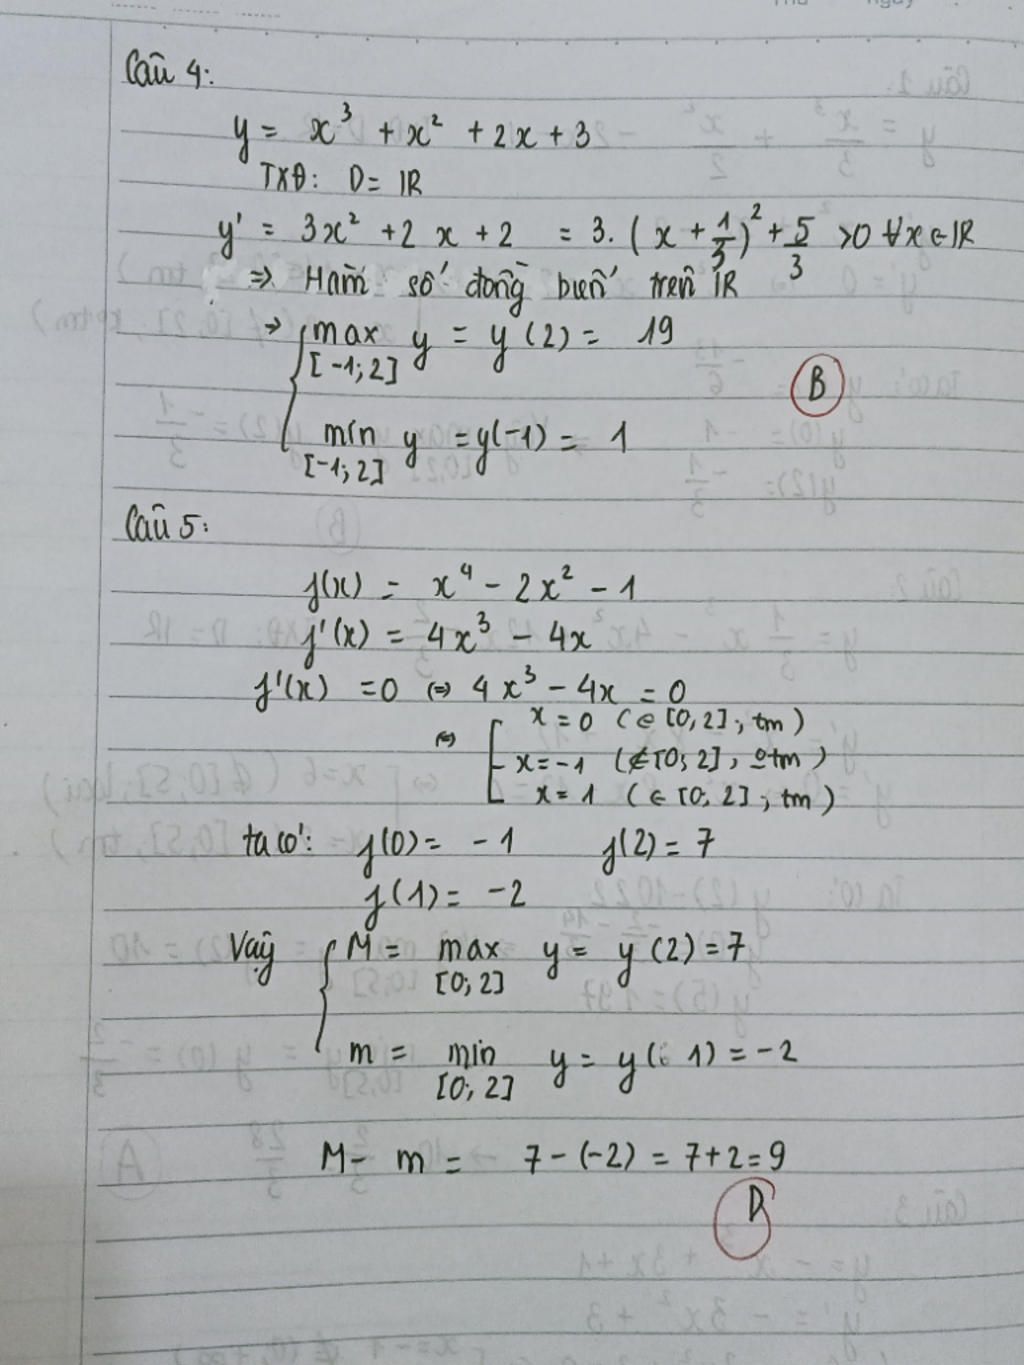 Câu 4:
y = x³ + x² + 2x + 3
TXĐ: D = ℝ
y' = 3x² + 2x + 2 = 3.(x + 1/3)² + 5/3 >0 ∀x∈ℝ
⇒ Hàm số đồng biến trên ℝ
⇒ { max y = y(2) = 19
[-1;2]
B
min y = y(-1) = 1
[-1;2]
Câu 5:
f(x) = x⁴ - 2x² - 1
f'(x) = 4x³ - 4x
f'(x) = 0 ⇔ 4x³ - 4x = 0
⇔ [ x = 0 (∈ [0,2]; tm)
x = -1 (∉ [0;2], otm)
x = 1 (∈ [0;2]; tm)
ta có: f(0) = -1 f(2) = 7
f(1) = -2
Vậy { M = max y = y(2) = 7
[0;2]
m = min y = y(1) = -2
[0;2]
M - m = 7 - (-2) = 7 + 2 = 9
D